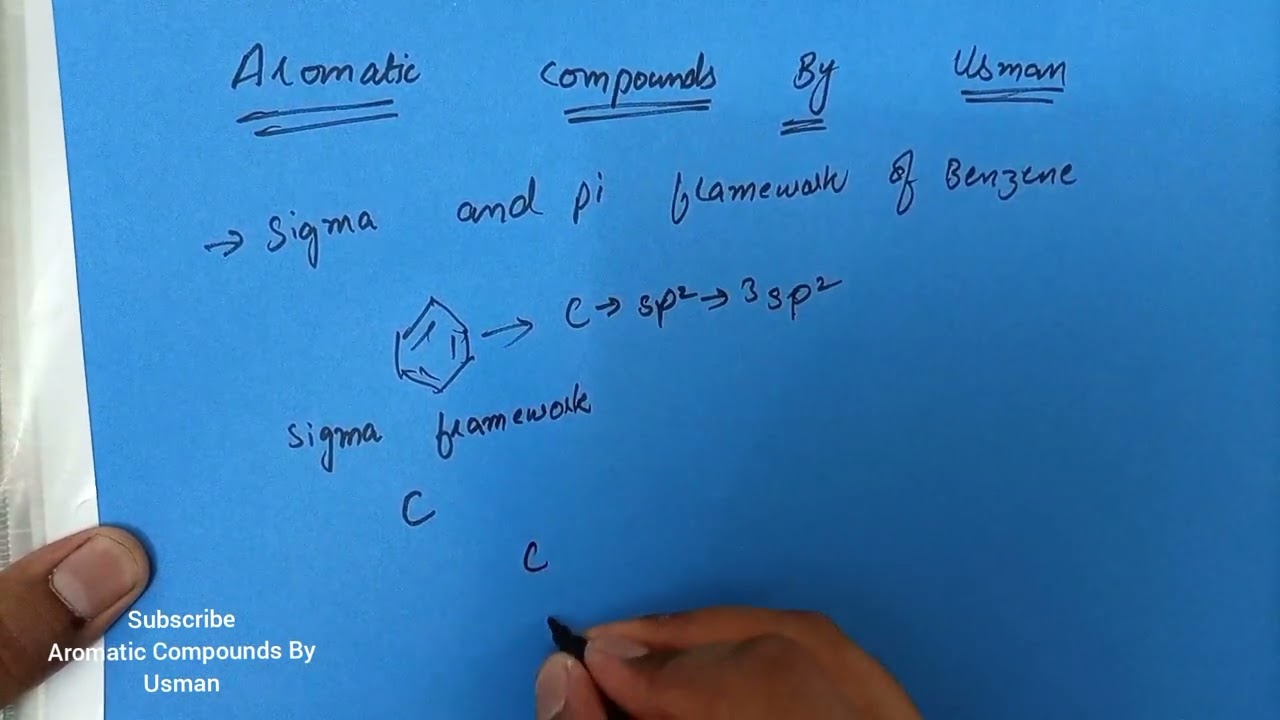 Aromatic compounds By Usman
→ Sigma and pi framework of Benzene
→ C → sp² → 3 sp²
sigma framework
C
C
Subscribe
Aromatic Compounds By
Usman